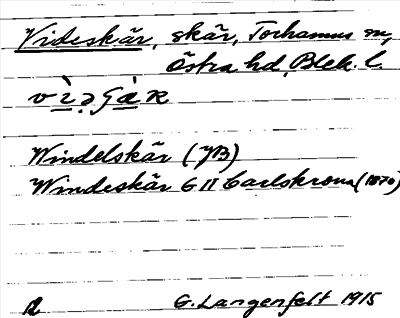 Videskär, skär, Torhamns sn,
Östra hd, Blek. l.
Windelskär (JB)
Windeskär G II Carlskrona (1870)
G. Langenfelt 1915